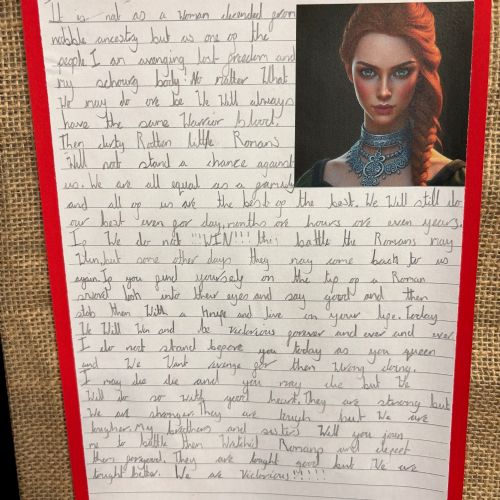 It is not as a woman decended from
nobble ancestry but as one of the
people. I am avenging lost freedom and
my schourg body. No matter What
We may do ore be We Will always
have the same Warrior blood.
Then dirty Rotten little Romans
Will not stand a chance against
us. We are all equal as a family
and all of us are the best of the best. We Will still do
our best even for day, months ore hours ore even years.
If We do not !!!WIN!!! this battle the Romans may
Win, but some other days they may come back to us
again. If you find yourself on the tip of a Roman
sword look into their eyes and say good and then
stab them With a knife and live on your life. Today
We Will Win and be victorious forever and ever and ever.
I do not stand before you today as you queen
and We Want revenge for then Wrong doing.
I may die die and you may die but We
Will do so with good heart. They are strong but
We are stronger. They are tough but We are
tougher. My brothers and sisters Will you join
me in battle then Watchil Romans and defeet
them forever. They are fought good but We are
fought better. We are Victorious!!!!!